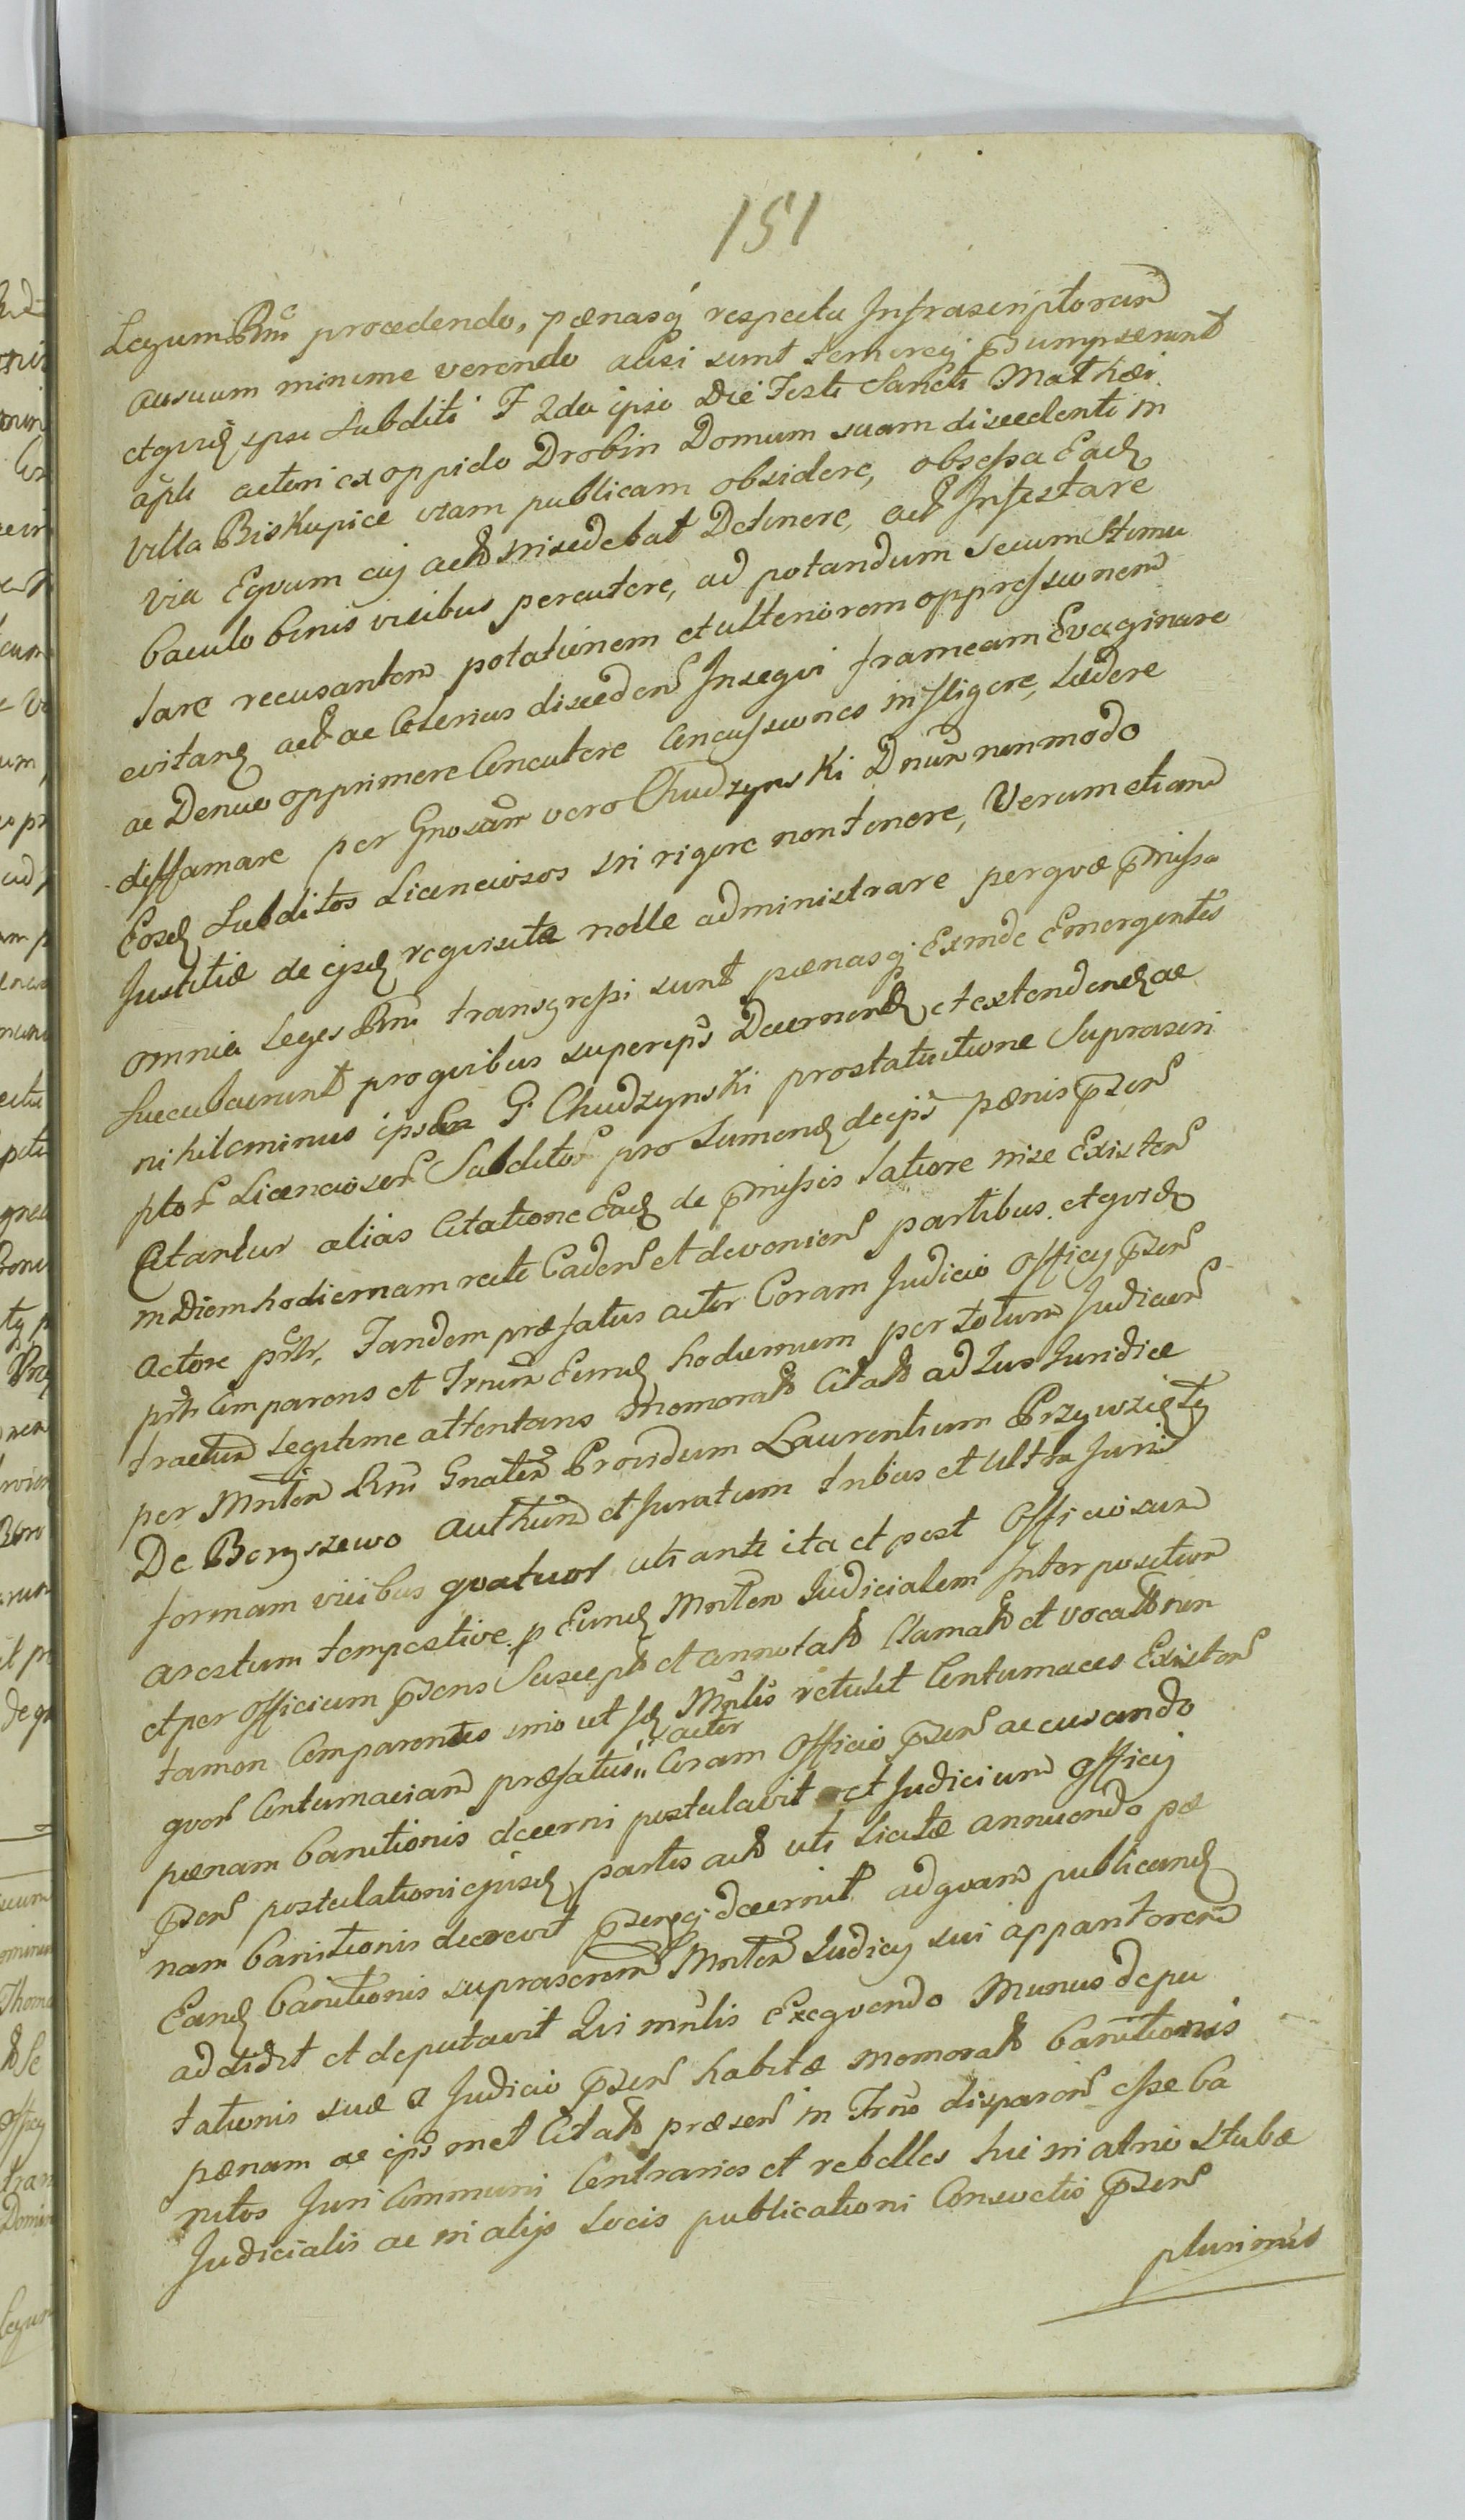 151
Legum Rni procedendo, pœnasq respectu Infrascriptorum
ausuum minime verendo ausi sunt temereq p̄sumpserunt
etquid ipsi Subditi F 2da ipso Die Festi Sancti Mathæi
apli actori ex oppido Drobin Domum suam discedenti in
Villa Biskupice viam publicam obsidere, obsessa Ead
via Equum cuj acto insidebat Detinere, act Infestare
baculo binis vicibus percutere, ad potandum Secum Stimu
lare recusantem potationem et ulteriorem oppressionem
evitand act ac Celerius disceden Insequi frameam Evaginare
ac Denuo opprimere Concutere Concussiones infligere, Lædere
diffamare per Gnosam vero Chudzynski Dnum nonmodo
Eosd Subditos Licenciosos in rigore non tenere, Verum etiam
Justitiæ de ejsd requisitæ nolle administrare perquæ p̄missa
omnia Leges Rni transgressi sunt pœnasq Exinde Emergentes
Succubuerunt pro quibus super ips Decernend et extendend ac
nihilominus ipsem G Chudzynski pro statuitione Suprascri
ptor Licencioser Subditor pro Sumend de ips pœnis p̄sen
Citantur alias Citatione Ead de p̄missis Latiore mise Existen
in Diem hodiernam recte Caden et devenien partibus. et quid
Actore prtr, Tandem præfatus actor Coram Judicio Officij p̄sen
prtr Comparens et Trnum Eund hodiernum per totum Judicior
tractum Legitime attentans memorat Citat ad Jus Juridice
per Mnlen Rni Gnalem Providum Laurentium Przywzięty
De Boryszewo Authum et Juratum tribus et Ultra Juris
formam vicibus quatuor uti ante ita et post Officiosum
arestum tempestive p Eund Mnlem Judicialem Interpositum
et per Officium p̄sens Suscept et annotat Clamat et vocat non
tamen Comparentes imo ut sd Mnlis retulit Contumaces Existen
quor Contumaciam præfatus actor Coram Officio p̄sen accusando
pœnam Banitionis decerni postulavit et Judicium Officij
p̄sen postulationi ejusd partis act uti Licitæ annuendo pæ
nam Banitionis decrevit p̄sensq decernit ad quam publicand
Eand Banitionis suprascrium Mnlem Judicij sui apparitorem
addidit et deputavit Qui mnlis Exequendo Munus depu
tationis suæ a Judicio p̄sen habitæ memorat Banitionis
pœnam ac ips met Citat præsen in Trno disparen esse Ba
nitos Juri Communi Contrarios et rebelles hic in atrio Stubæ
Judicialis ac in alijs Locis publicationi Consvetis p̄sen
plurimis